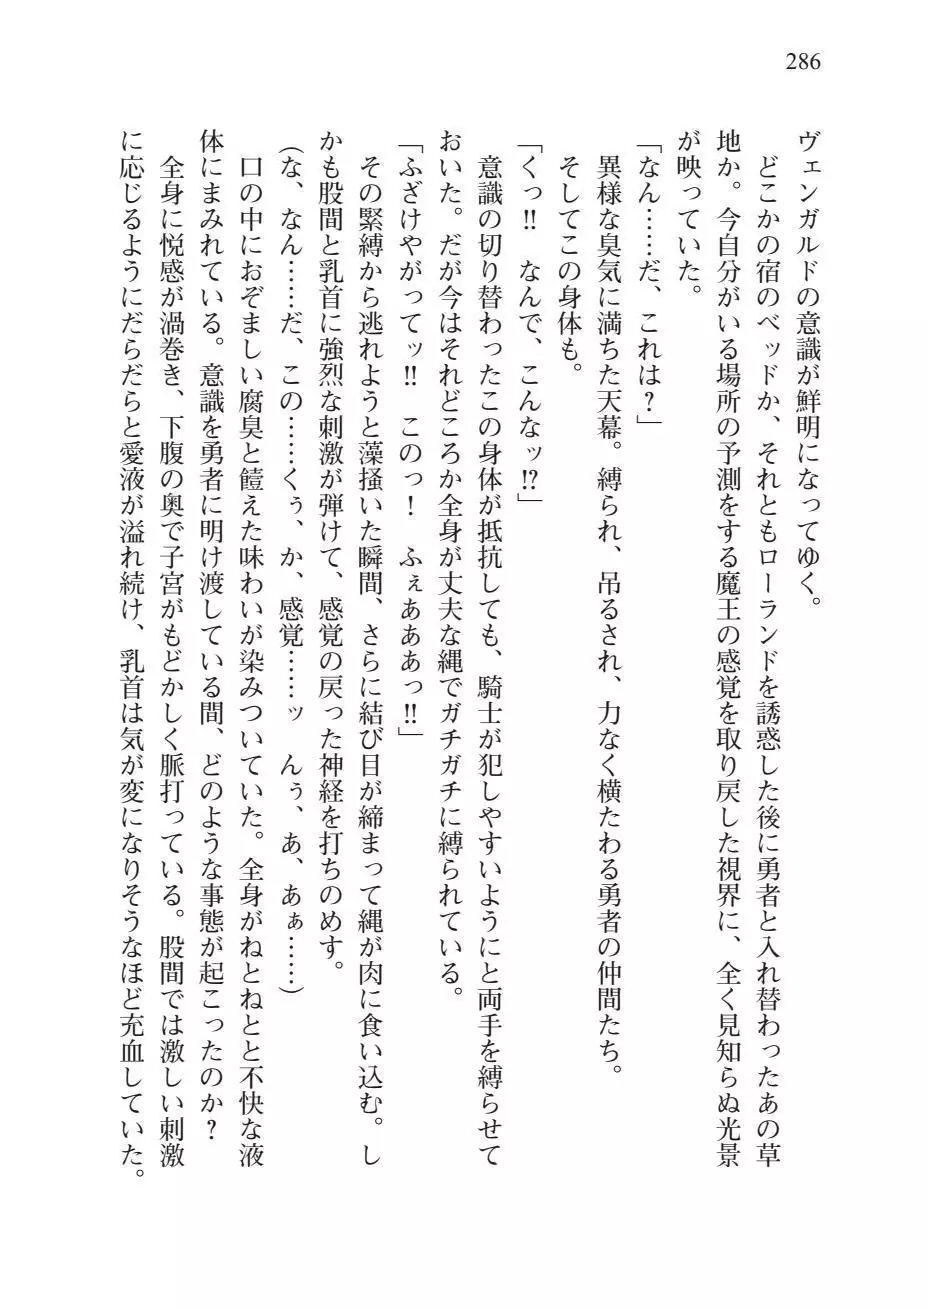 286
ヴェンガルドの意識が鮮明になってゆく。
どこかの宿のベッドか、それともローランドを誘惑した後に勇者と入れ替わったあの草
地か。今自分がいる場所の予測をする魔王の感覚を取り戻した視界に、全く見知らぬ光景
が映っていた。
「なん……だ、これは？」
異様な臭気に満ちた天幕。縛られ、吊るされ、力なく横たわる勇者の仲間たち。
そしてこの身体も。
「くっ!!　なんで、こんなッ!?」
意識の切り替わったこの身体が抵抗しても、騎士が犯しやすいようにと両手を縛らせて
おいた。だが今はそれどころか全身が丈夫な縄でガチガチに縛られている。
「ふざけやがってッ!!　このっ！　ふぇあああっ!!」
その緊縛から逃れようと藻掻いた瞬間、さらに結び目が締まって縄が肉に食い込む。し
かも股間と乳首に強烈な刺激が弾けて、感覚の戻った神経を打ちのめす。
（な、なん……だ、この……くぅ、か、感覚……ッ　んぅ、あ、あぁ……）
口の中におぞましい腐臭と饐えた味わいが染みついていた。全身がねとねとと不快な液
体にまみれている。意識を勇者に明け渡している間、どのような事態が起こったのか？
全身に悦感が渦巻き、下腹の奥で子宮がもどかしく脈打っている。股間では激しい刺激
に応じるようにだらだらと愛液が溢れ続け、乳首は気が変になりそうなほど充血していた。